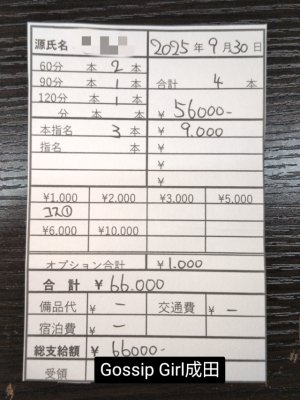 源氏名 2025年9月30日
60分 本 2 本
90分 本 1 本 合計 4 本
120分 本 1 本
分 本 ¥56000-
本指名 3 本 ¥9.000
指名 本 ¥
¥
¥
¥1.000 ¥2.000 ¥3.000 ¥5.000
コス①
¥6.000 ¥10.000
オプション合計 ¥1.000
合計 ¥66.000
備品代 ¥ - 交通費 ¥ -
宿泊費 ¥ -
総支給額 ¥66000-
受領
Gossip Girl成田